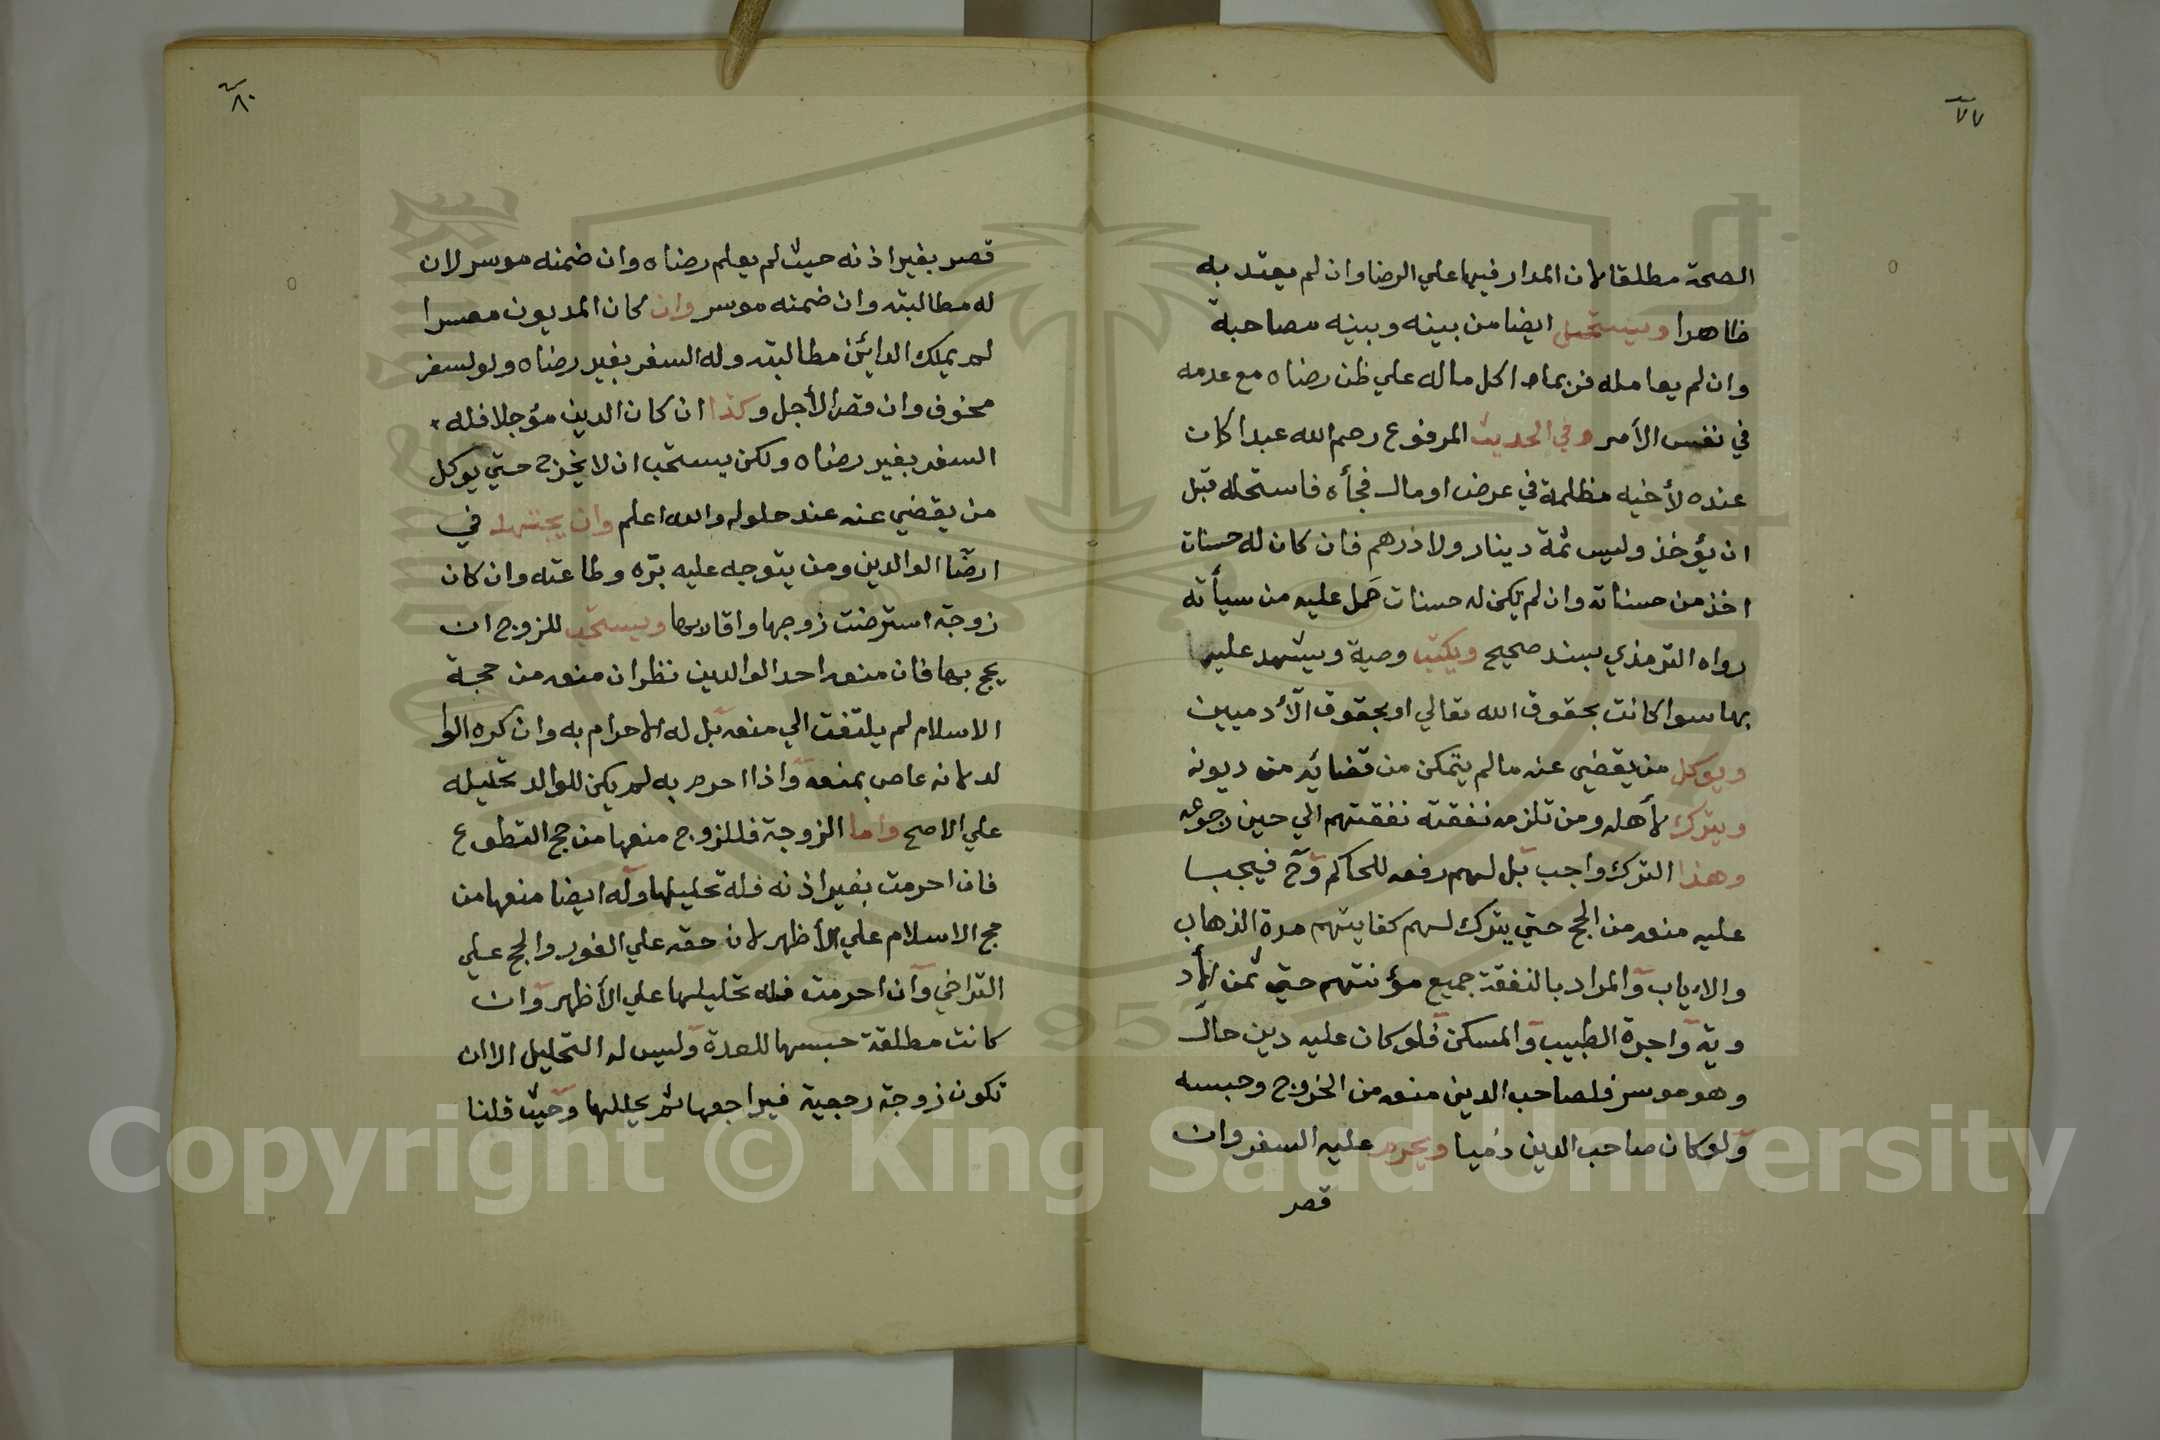 ٧٧
الصحة مطلقا لان المدار فيها علي الرضا وان لم يعتد به
ظاهرا ويستحل ايضا من بينه وبينه مصاحبة
وان لم يعامله فربما اكل ماله علي ظن رضاه مع عدمه
في نفس الأمر وفي الحديث المرفوع رحم الله عبدا كان
عنده لأخيه مظلمة في عرض او مال فجأه فاستحله قبل
ان يؤخذ وليس ثمة دينار ولا درهم فان كان له حسنات
اخذ من حسناته وان لم يكن له حسنات حمل عليه من سيأته
رواه الترمذي بسند صحيح ويكتب وصية ويشهد عليها
بها سوا كانت بحقوق الله تعالي او بحقوق الأدميين
ويوكل من يقضي عنه ما لم يتمكن من قضائه من ديونه
ويترك لأهله ومن تلزمه نفقته نفقتهم الي حين رجوعه
وهذا الترك واجب بل لهم رفعه للحاكم وح فيجب
عليه منعه من الحج حتي يترك لهم كفايتهم مدة الذهاب
والاياب والمراد بالنفقة جميع مؤنتهم حتي ثمن الأد
وية واجرة الطبيب والمسكن فلو كان عليه دين حال
وهو موسر فلصاحب الدين منعه من الخروج وحبسه
ولو كان صاحب الدين ذميا ويحرم عليه السفر وان
قصر
٨٠
قصر بغير اذنه حيث لم يعلم رضاه وان ضمنه موسر لان
له مطالبته وان ضمنه موسر وان كان المديون معسرا
لم يملك الدائن مطالبته وله السفر بغير رضاه ولو لسفر
مخوف وان قصر الأجل وكذا ان كان الدين مؤجلا فله
السفر بغير رضاه ولكن يستحب ان لا يخرج حتي يوكل
من يقضي عنه عند حلوله والله اعلم وان يجتهد في
ارضا الوالدين ومن يتوجه عليه بره وطاعته وان كان
زوجة استرضت زوجها واقاربها ويستحب للزوج ان
يحج بها فان منعه احد الوالدين نظر ان منعه من حجة
الاسلام لم يلتفت الي منعه بل له الاحرام به وان كره الوا
لد لانه عاص بمنعه واذا احرم به لم يكن للوالد تحليله
علي الاصح واما الزوجة فللزوج منعها من حج التطوع
فان احرمت بغير اذنه فله تحليلها وله ايضا منعها من
حج الاسلام علي الأظهر لان حقه علي الفور والحج علي
التراخي وان احرمت فله تحليلها علي الأظهر وان
كانت مطلقة حبسها للعدة وليس له التحليل الا ان
تكون زوجة رجعية فيراجعها ثم يحللها وحيث قلنا
Copyright © King Saud University
1957